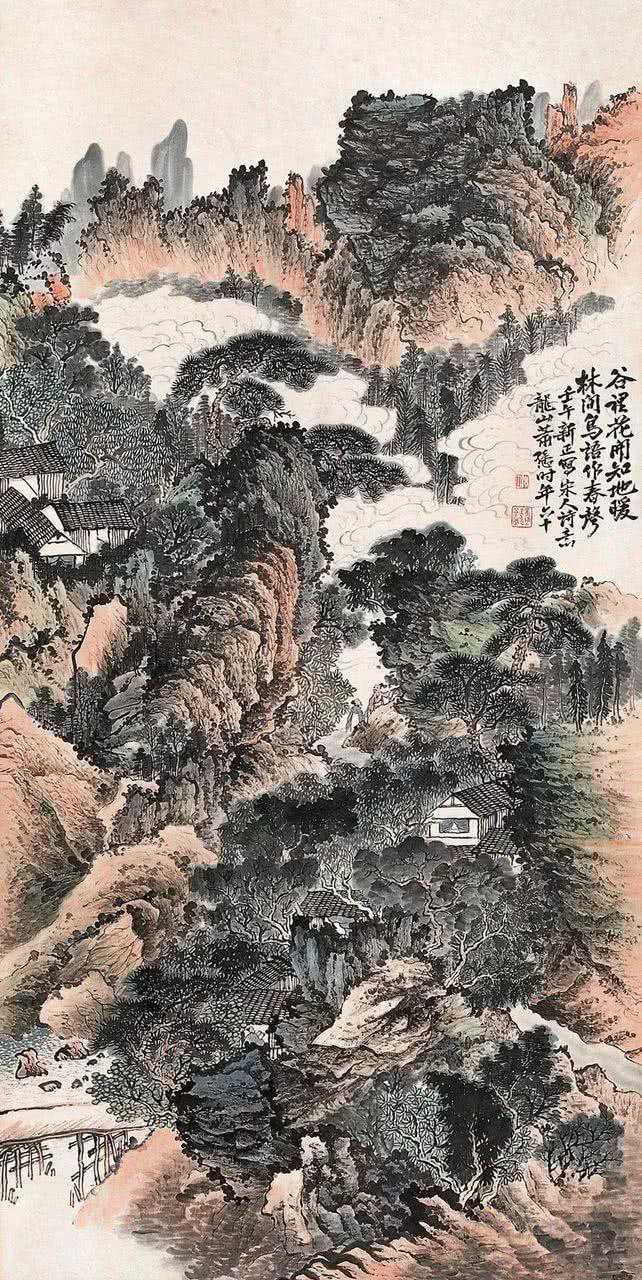 谷裡花開知地暖
林間鳥語作春聲
壬午新正寫宋人詩意
龍山蕭愻時年六十